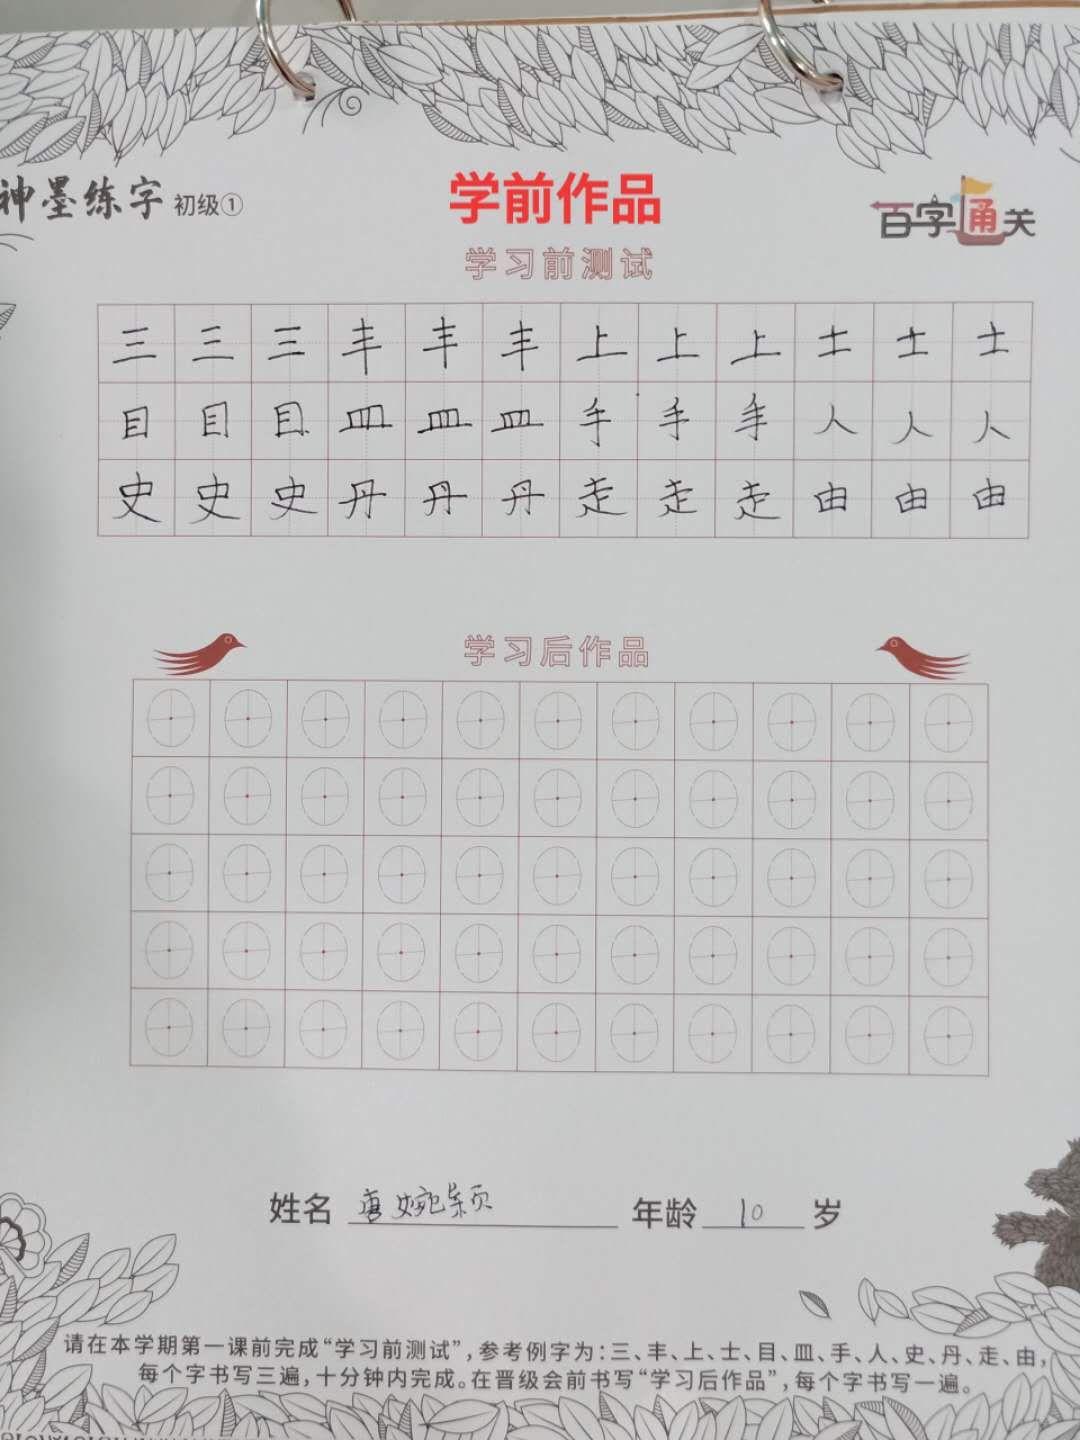 神墨练字 初级①
学前作品
百字通关
学习前测试
三三三丰丰丰上上上士士士
目目目皿皿皿手手手人人人
史史史丹丹丹走走走由由由
学习后作品
姓名 唐婉颖 年龄 10 岁
请在本学期第一课前完成“学习前测试”,参考例字为:三、丰、上、士、目、皿、手、人、史、丹、走、由,
每个字书写三遍,十分钟内完成。在晋级会前书写“学习后作品”,每个字书写一遍。